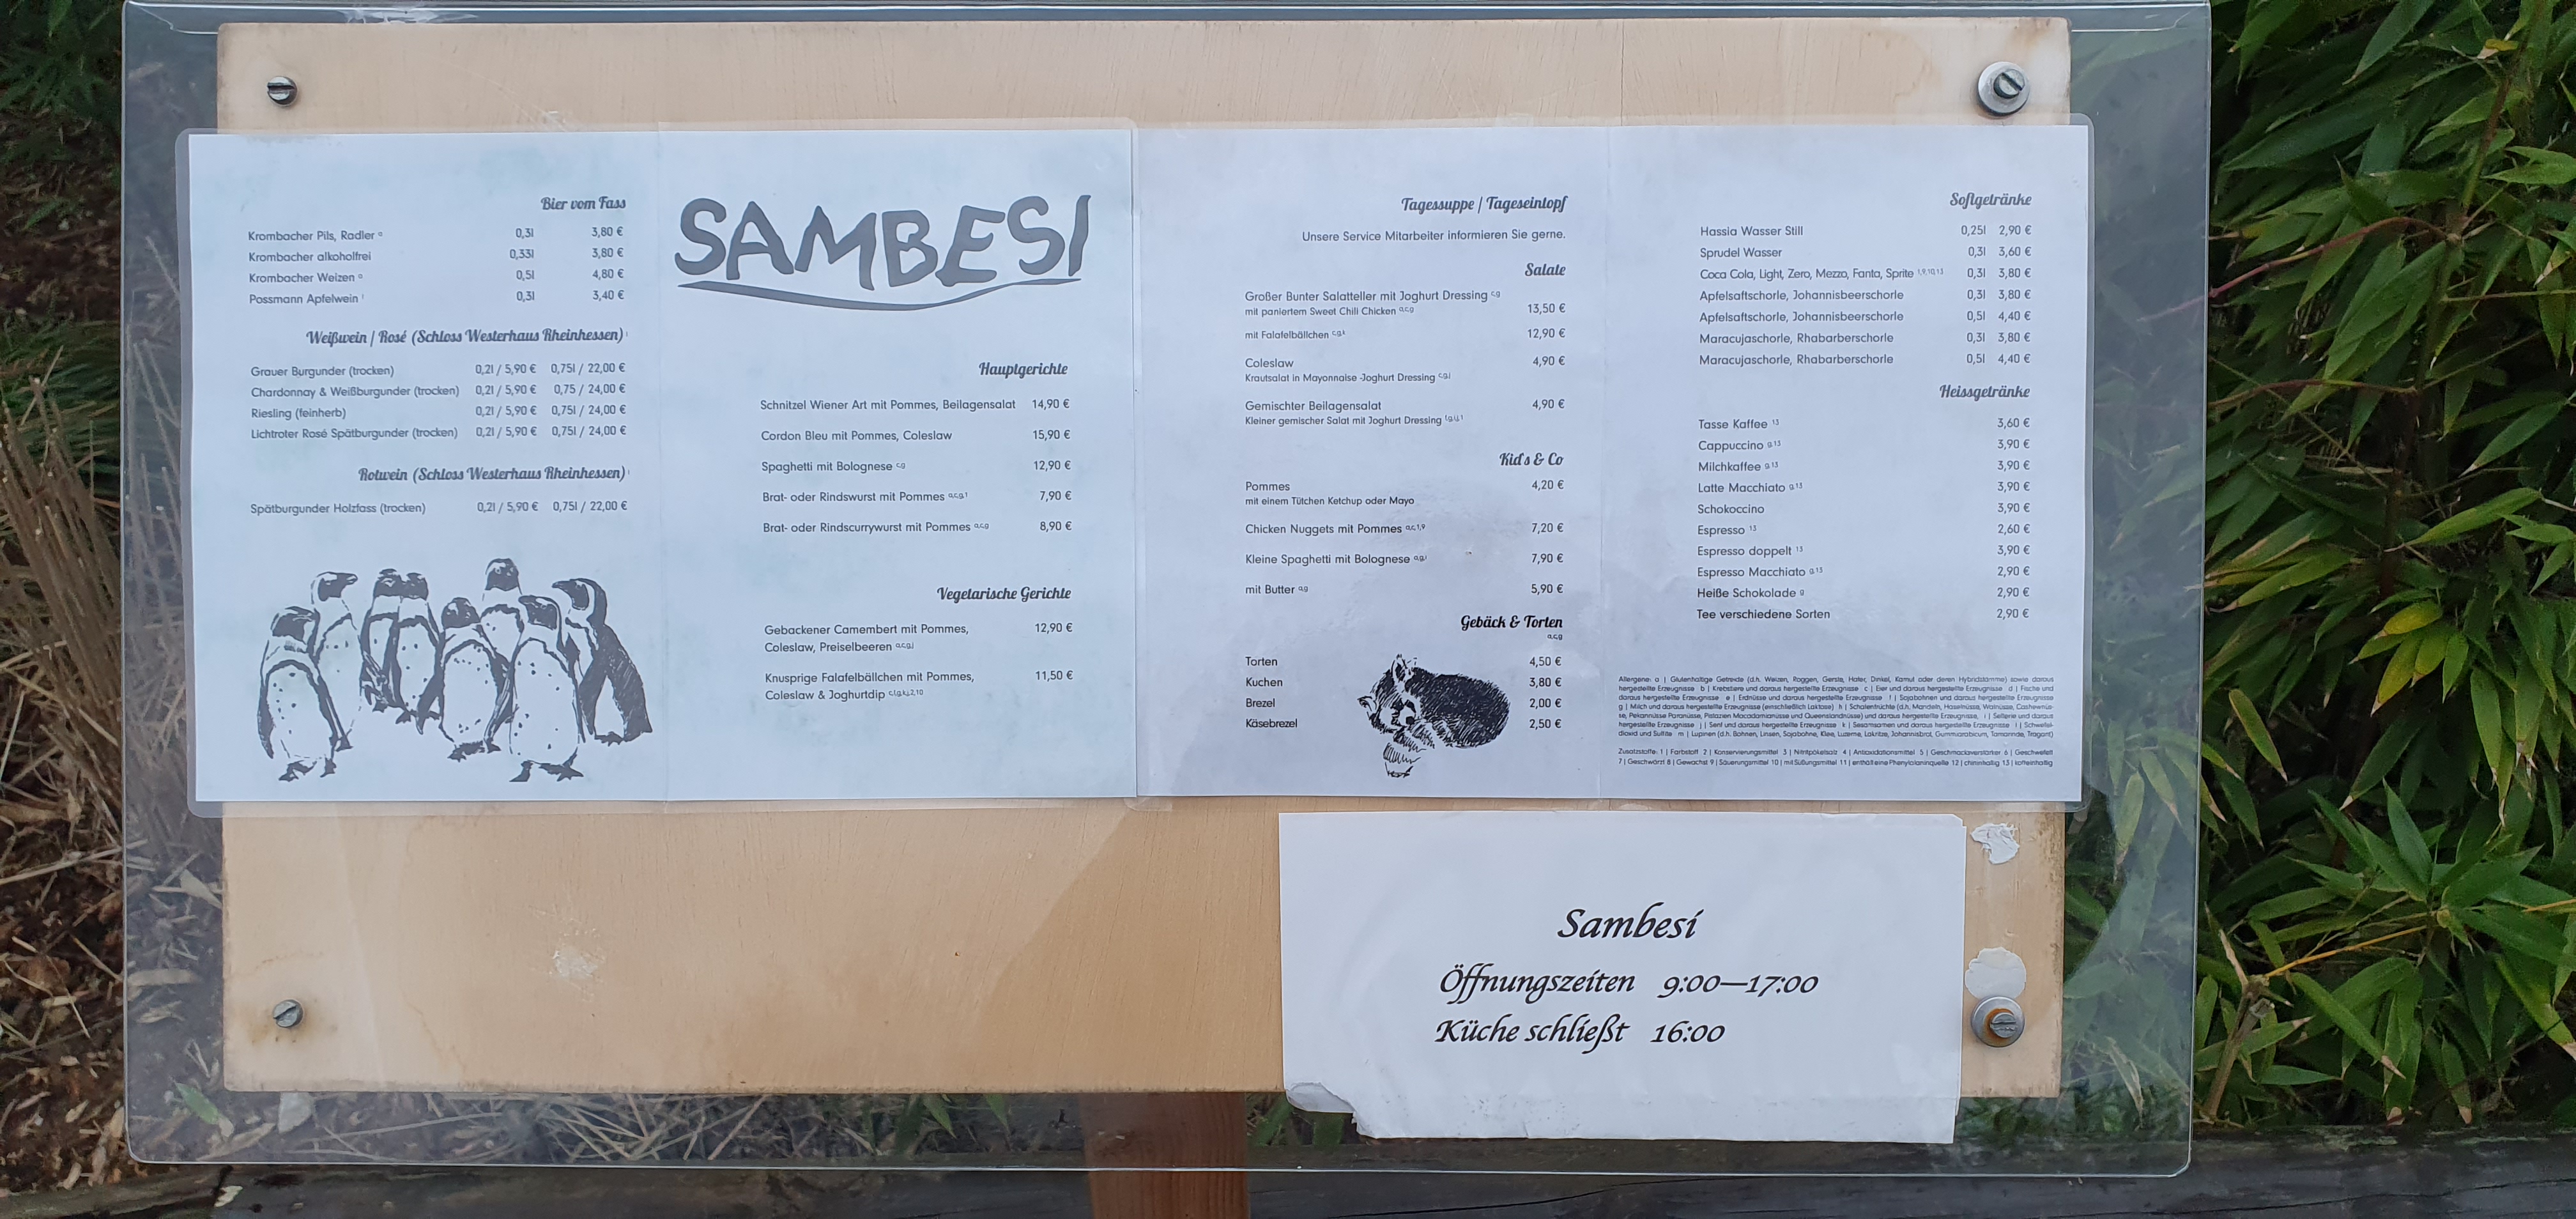 Bier vom Fass
Krombacher Pils, Radler a 0,3l 3,80 €
Krombacher alkoholfrei 0,33l 3,80 €
Krombacher Weizen a 0,5l 4,80 €
Possmann Apfelwein l 0,3l 3,40 €
Weißwein / Rosé (Schloss Westerhaus Rheinhessen) l
Grauer Burgunder (trocken) 0,2l / 5,90 € 0,75l / 22,00 €
Chardonnay & Weißburgunder (trocken) 0,2l / 5,90 € 0,75 / 24,00 €
Riesling (feinherb) 0,2l / 5,90 € 0,75l / 24,00 €
Lichtroter Rosé Spätburgunder (trocken) 0,2l / 5,90 € 0,75l / 24,00 €
Rotwein (Schloss Westerhaus Rheinhessen) l
Spätburgunder Holzfass (trocken) 0,2l / 5,90 € 0,75l / 22,00 €
SAMBESI
Hauptgerichte
Schnitzel Wiener Art mit Pommes, Beilagensalat 14,90 €
Cordon Bleu mit Pommes, Coleslaw 15,90 €
Spaghetti mit Bolognese c,g 12,90 €
Brat- oder Rindswurst mit Pommes a,c,g,1 7,90 €
Brat- oder Rindscurrywurst mit Pommes a,c,g 8,90 €
Vegetarische Gerichte
Gebackener Camembert mit Pommes, 12,90 €
Coleslaw, Preiselbeeren a,c,g,j
Knusprige Falafelbällchen mit Pommes, 11,50 €
Coleslaw & Joghurtdip
Tagessuppe / Tageseintopf
Unsere Service Mitarbeiter informieren Sie gerne.
Salate
Großer Bunter Salatteller mit Joghurt Dressing c,g
mit paniertem Sweet Chili Chicken a,c,g 13,50 €
mit Falafelbällchen c,g,k 12,90 €
Coleslaw 4,90 €
Krautsalat in Mayonnaise -Joghurt Dressing c,g,j
Gemischter Beilagensalat 4,90 €
Kleiner gemischer Salat mit Joghurt Dressing
Kid's & Co
Pommes 4,20 €
mit einem Tütchen Ketchup oder Mayo
Chicken Nuggets mit Pommes a,c,1,9 7,20 €
Kleine Spaghetti mit Bolognese a,g,i 7,90 €
mit Butter a,g 5,90 €
Gebäck & Torten
a,c,g
Torten 4,50 €
Kuchen 3,80 €
Brezel 2,00 €
Käsebrezel 2,50 €
Softgetränke
Hassia Wasser Still 0,25l 2,90 €
Sprudel Wasser 0,3l 3,60 €
Coca Cola, Light, Zero, Mezzo, Fanta, Sprite 1,9,10,13 0,3l 3,80 €
Apfelsaftschorle, Johannisbeerschorle 0,3l 3,80 €
Apfelsaftschorle, Johannisbeerschorle 0,5l 4,40 €
Maracujaschorle, Rhabarberschorle 0,3l 3,80 €
Maracujaschorle, Rhabarberschorle 0,5l 4,40 €
Heissgetränke
Tasse Kaffee 13 3,60 €
Cappuccino g,13 3,90 €
Milchkaffee g,13 3,90 €
Latte Macchiato g,13 3,90 €
Schokoccino 3,90 €
Espresso 13 2,60 €
Espresso doppelt 13 3,90 €
Espresso Macchiato g,13 2,90 €
Heiße Schokolade g 2,90 €
Tee verschiedene Sorten 2,90 €
Allergene: a | Glutenhaltige Getreide (d.h. Weizen, Roggen, Gerste, Hafer, Dinkel, Kamut oder deren Hybridstämme) sowie daraus
hergestellte Erzeugnisse b | Krebstiere und daraus hergestellte Erzeugnisse c | Eier und daraus hergestellte Erzeugnisse d | Fische und
daraus hergestellte Erzeugnisse e | Erdnüsse und daraus hergestellte Erzeugnisse f | Sojabohnen und daraus hergestellte Erzeugnisse
g | Milch und daraus hergestellte Erzeugnisse (einschließlich Laktose) h | Schalenfrüchte (d.h. Mandeln, Haselnüsse, Walnüsse, Cashewnüs-
se, Pekannüsse Paranüsse, Pistazien Macadamianüsse und Queenslandnüsse) und daraus hergestellte Erzeugnisse, i | Sellerie und daraus
hergestellte Erzeugnisse j | Senf und daraus hergestellte Erzeugnisse k | Sesamsamen und daraus hergestellte Erzeugnisse l | Schwefel-
dioxid und Sulfite m | Lupinen (d.h. Bohnen, Linsen, Sojabohne, Klee, Luzerne, Lakritze, Johannisbrot, Gummiarabicum, Tamarinde, Tragant)
Zusatzstoffe: 1 | Farbstoff 2 | Konservierungsmittel 3 | Nitritpökelsalz 4 | Antioxidationsmittel 5 | Geschmacksverstärker 6 | Geschwefelt
7 | Geschwärzt 8 | Gewachst 9 | Säuerungsmittel 10 | mit Süßungsmittel 11 | enthält eine Phenylalaninquelle 12 | chininhaltig 13 | koffeinhaltig
Sambesi
Öffnungszeiten 9:00—17:00
Küche schließt 16:00